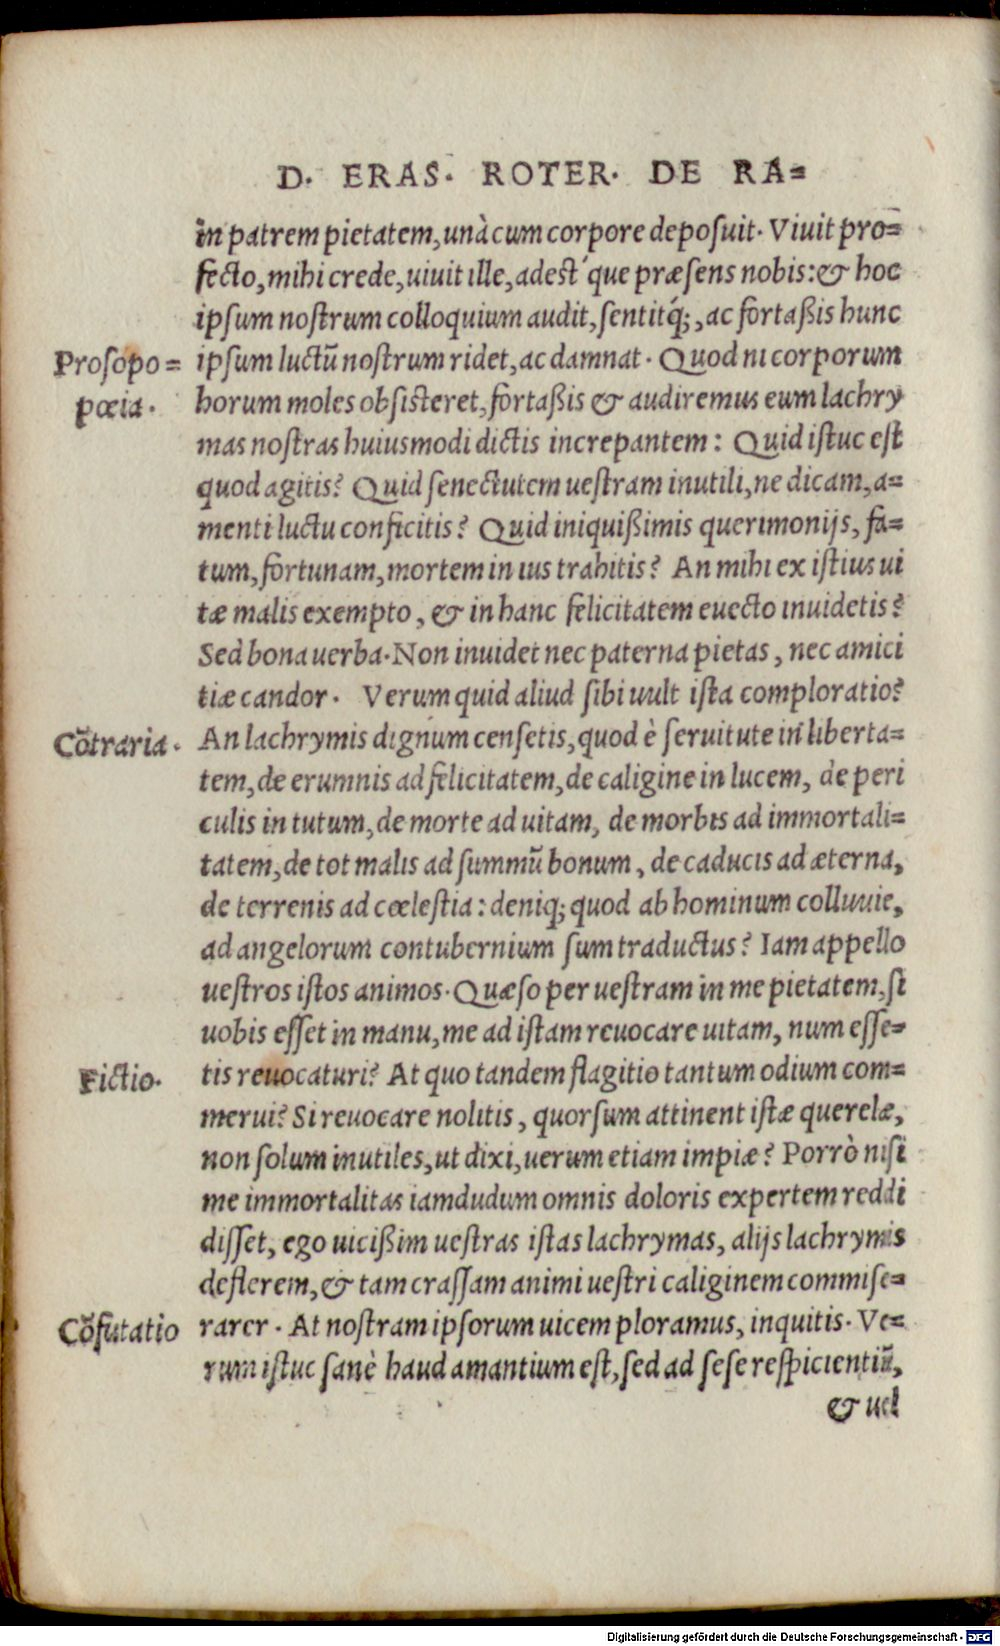 D. ERAS. ROTER. DE RA=
in patrem pietatem, unà cum corpore deposuit. Viuit pro=
fecto, mihi crede, uiuit ille, adest'que præsens nobis: & hoc
ipsum nostrum colloquium audit, sentitq́;, ac fortaßis hunc
Prosopo=
pœia.
ipsum luctū nostrum ridet, ac damnat. Quod ni corporum
horum moles obsisteret, fortaßis & audiremus eum lachry
mas nostras huiusmodi dictis increpantem: Quid istuc est
quod agitis? Quid senectutem uestram inutili, ne dicam, a=
menti luctu conficitis? Quid iniquißimis querimonijs, fa=
tum, fortunam, mortem in ius trahitis? An mihi ex istius ui
tæ malis exempto, & in hanc felicitatem euecto inuidetis?
Sed bona uerba. Non inuidet nec paterna pietas, nec amici
tiæ candor. Verum quid aliud sibi uult ista comploratio?
Cōtraria.
An lachrymis dignum censetis, quod è seruitute in liberta=
tem, de erumnis ad felicitatem, de caligine in lucem, de peri
culis in tutum, de morte ad uitam, de morbis ad immortali=
tatem, de tot malis ad summū bonum, de caducis ad æterna,
de terrenis ad cœlestia: deniq; quod ab hominum colluuie,
ad angelorum contubernium sum traductus? Iam appello
uestros istos animos. Quæso per uestram in me pietatem, si
uobis esset in manu, me ad istam reuocare uitam, num esse=
Fictio.
tis reuocaturi? At quo tandem flagitio tantum odium com=
merui? Si reuocare nolitis, quorsum attinent istæ querelæ,
non solum inutiles, ut dixi, uerum etiam impiæ? Porrò nisi
me immortalitas iamdudum omnis doloris expertem reddi
disset, ego uicißim uestras istas lachrymas, alijs lachrymis
deflerem, & tam crassam animi uestri caliginem commise=
Cōfutatio
rarer. At nostram ipsorum uicem ploramus, inquitis. Ve=
rum istuc sanè haud amantium est, sed ad sese respicientiū,
& uel
Digitalisierung gefördert durch die Deutsche Forschungsgemeinschaft - DFG